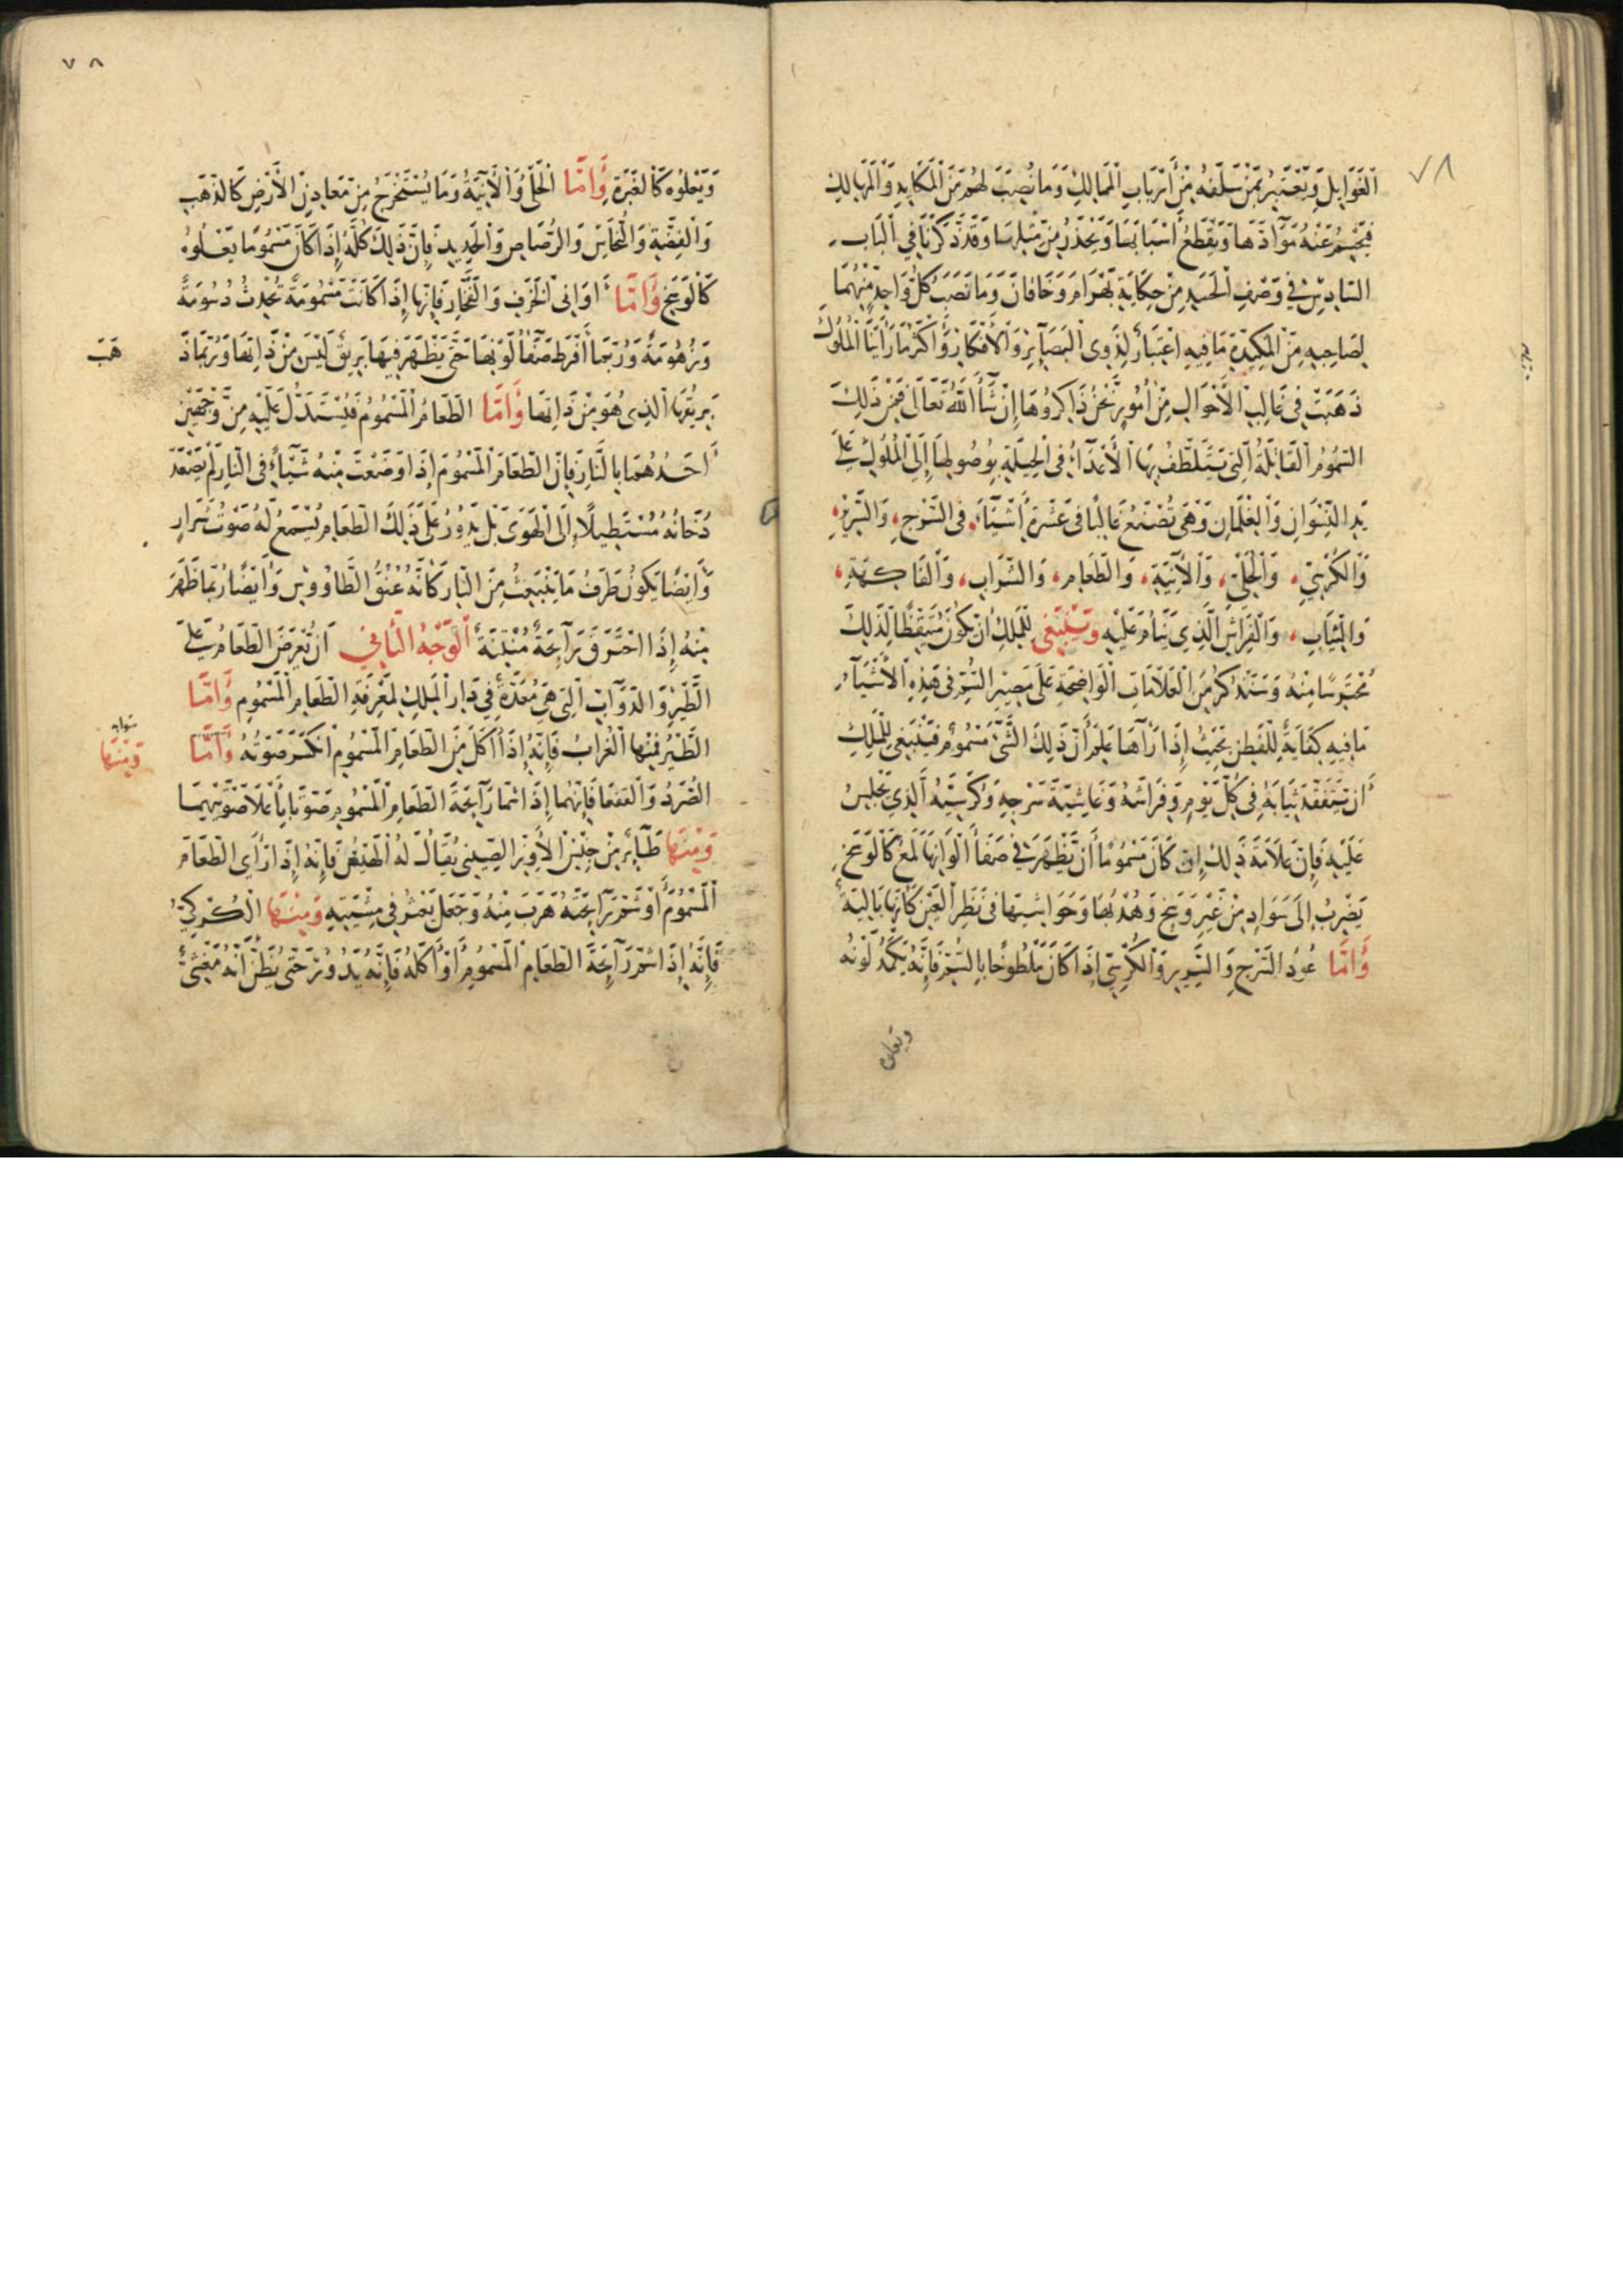 ٧٨
الغَوَايِلَ وَيَعْتَبِرُ بِمَنْ سَلَفَهُ مِنْ أَرْبَابِ الْمَمَالِكِ وَمَا نُصِبَ لَهُم مِنَ الْمَكَايِدِ وَالْمَهَالِكِ
فَيَحْسِمُ عَنْهُ مَوَآدَّهَا وَيَقْطَعُ أَسْبَابَهَا وَيَحْذَرُ مِنْ مِثْلِهَا وَقَدْ ذَكَرْنَا فِي الْبَابِ
السَّادِسِ فِي وَصْفِ الْحَسَدِ مِنْ حِكَايَةِ بَهْرَامَ وَخَاقَانَ وَمَا نَصَبَ كُلُّ وَاحِدٍ مِنْهُمَا
لِصَاحِبِهِ مِنَ الْمَكِيدَةِ مَا فِيهِ اعْتِبَارٌ لِذَوِى الْبَصَآئِرِ وَالْأَفْكَارِ وَأَكْثَرُ مَا رَأَيْنَا الْمُلُوكَ
ذَهَبَتْ فِي غَالِبِ الْأَحْوَالِ مِنْ أُمُورٍ نَحْنُ ذَاكِرُوهَا إِنْ شَآءَ اللَّهُ تَعَالَى فَمِنْ ذَلِكَ
السُّمُومُ الْقَاتِلَةُ الَّتِي يَتَلَطَّفُ بِهَا الْأَعْدَآءُ فِي الْحِيلَةِ بِوُصُولِهَا إِلَى الْمُلُوكِ عَلَى
يَدِ النِّسْوَانِ وَالْغِلْمَانِ وَهِيَ تُصْنَعُ غَالِبًا فِي عَشْرَةِ أَشْيَآءَ فِي السَّرْجِ، وَالسَّرِيرِ،
وَالْكُرْسِيِّ، وَالْحُلِيِّ، وَالْآنِيَةِ، وَالطَّعَامِ، وَالشَّرَابِ، وَالْفَاكِهَةِ،
وَالثِّيَابِ، وَالْفِرَاشِ الَّذِي يَنَامُ عَلَيْهِ وَيَنْبَغِي لِلْمَلِكِ أَنْ يَكُونَ مُتَيَقِّظًا لِذَلِكَ
مُحْتَرِسًا مِنْهُ وَسَنَذْكُرُ مِنَ الْعَلَامَاتِ الْوَاضِحَةِ عَلَى مَصِيرِ السُّمِّ فِي هَذِهِ الْأَشْيَآءِ
مَا فِيهِ كِفَايَةٌ لِلْفَطِنِ بِحَيْثُ إِذَا رَآهَا عَلِمَ أَنَّ ذَلِكَ الشَّيْءَ مَسْمُومٌ فَيَنْبَغِي لِلْمَلِكِ
أَنْ يَتَفَقَّدَ ثِيَابَهُ فِي كُلِّ يَوْمٍ وَفِرَاشَهُ وَغَاشِيَةَ سَرْجِهِ وَكُرْسِيَّهُ الَّذِي يَجْلِسُ
عَلَيْهِ فَإِنَّ عَلَامَةَ ذَلِكَ إِنْ كَانَ مَسْمُومًا أَنْ يَظْهَرَ فِي صَفَآءِ أَلْوَانِهَا لُمَعٌ كَالْوَسَخِ
يَضْرِبُ إِلَى سَوَادٍ مِنْ غَيْرِ وَسَخٍ وَهُدْبُهَا وَحَوَاشِيهَا فِي نَظَرِ الْعَيْنِ كَأَنَّهَا بَالِيَةٌ
وَأَمَّا عُودُ السَّرْجِ وَالسَّرِيرِ وَالْكُرْسِيِّ إِذَا كَانَ مَلْطُوخًا بِالسُّمِّ فَإِنَّهُ يَكْمَدُ لَوْنُهُ
ويعلوه
٧٨
وَيَعْلُوهُ كَالْغَبَرَةِ وَأَمَّا الْحُلِيُّ وَالْآنِيَةُ وَمَا يُسْتَخْرَجُ مِنْ مَعَادِنِ الْأَرْضِ كَالذَّهَبِ
وَالْفِضَّةِ وَالنُّحَاسِ وَالرَّصَاصِ وَالْحَدِيدِ فَإِنَّ ذَلِكَ كُلَّهُ إِذَا كَانَ مَسْمُومًا يَعْلُوهُ
كَالْوَسَخِ وَأَمَّا أَوَانِي الْخَزَفِ وَالْفَخَّارِ فَإِنَّهَا إِذَا كَانَتْ مَسْمُومَةً تُحْدِثُ دُسُومَةً
وَزُهُومَةً وَرُبَّمَا أَفْرَطَ صَفَآءُ لَوْنِهَا حَتَّى يَظْهَرَ فِيهَا بَرِيقٌ لَيْسَ مِنْ ذَاتِهَا وَرُبَّمَا ذَ
هَبَ
بَرِيقُهَا الَّذِى هُوَ مِنْ ذَاتِهَا وَأَمَّا الطَّعَامُ الْمَسْمُومُ فَيُسْتَدَلُّ عَلَيْهِ مِنْ وَجْهَيْنِ
أَحَدُهُمَا بِالنَّارِ فَإِنَّ الطَّعَامَ الْمَسْمُومَ إِذَا وَضَعْتَ مِنْهُ شَيْئًا فِي النَّارِ لَمْ يَصْعَدْ
دُخَانُهُ مُسْتَطِيلًا إِلَى الْهَوَى بَلْ يَدُورُ عَلَى ذَلِكَ الطَّعَامِ يُسْمَعُ لَهُ صَوْتُ شَرَارٍ
وَأَيْضًا يَكُونُ طَرَفُ مَا يَنْبَعِثُ مِنَ النَّارِ كَأَنَّهُ عُنُقُ الطَّاوُوسِ وَأَيْضًا رُبَّمَا ظَهَرَ
مِنْهُ إِذَا احْتَرَقَ رَآئِحَةٌ مُنْتِنَةٌ الْوَجْهُ الثَّانِي أَنْ تُعْرَضَ الطَّعَامُ عَلَى
الطَّيْرِ وَالدَّوَآبِّ الَّتِي هِيَ مُعَدَّةٌ فِي دَارِ الْمَلِكِ لِمَعْرِفَةِ الطَّعَامِ الْمَسْمُومِ وَأَمَّا
الطَّيْرُ فَمِنْهَا الْغُرَابُ فَإِنَّهُ إِذَا أَكَلَ مِنَ الطَّعَامِ الْمَسْمُومِ انْكَسَرَ صَوْتُهُ وَأَمَّا
صوابه
وَمِنْهَا
الصُّرَدُ وَالْعَقْعَقَا فَإِنَّهُمَا إِذَا شَمَّا رَآئِحَةَ الطَّعَامِ الْمَسْمُومِ صَوَّتَا بِأَعْلَا صَوْتَيْهِمَا
وَمِنْهَا طَآئِرٌ مِنْ جِنْسِ الْأَوِزِّ الصِّينِي يُقَالُ لَهُ فَإِنَّهُ إِذَا رَأَى الطَّعَامَ
الْمَسْمُومَ أَوْ شَمَّ رَآئِحَتَهُ هَرَبَ مِنْهُ وَجَعَلَ يَعْثُرُ فِي مِشْيَتِهِ وَمِنْهَا الْكُرْكِيُّ
فَإِنَّهُ إِذَا اشْتَمَّ رَآئِحَةَ الطَّعَامِ الْمَسْمُومِ أَوْ أَكَلَهُ فَإِنَّهُ يَدُورُ حَتَّى يُظَنَّ أَنَّهُ مَغْشِيٌّ